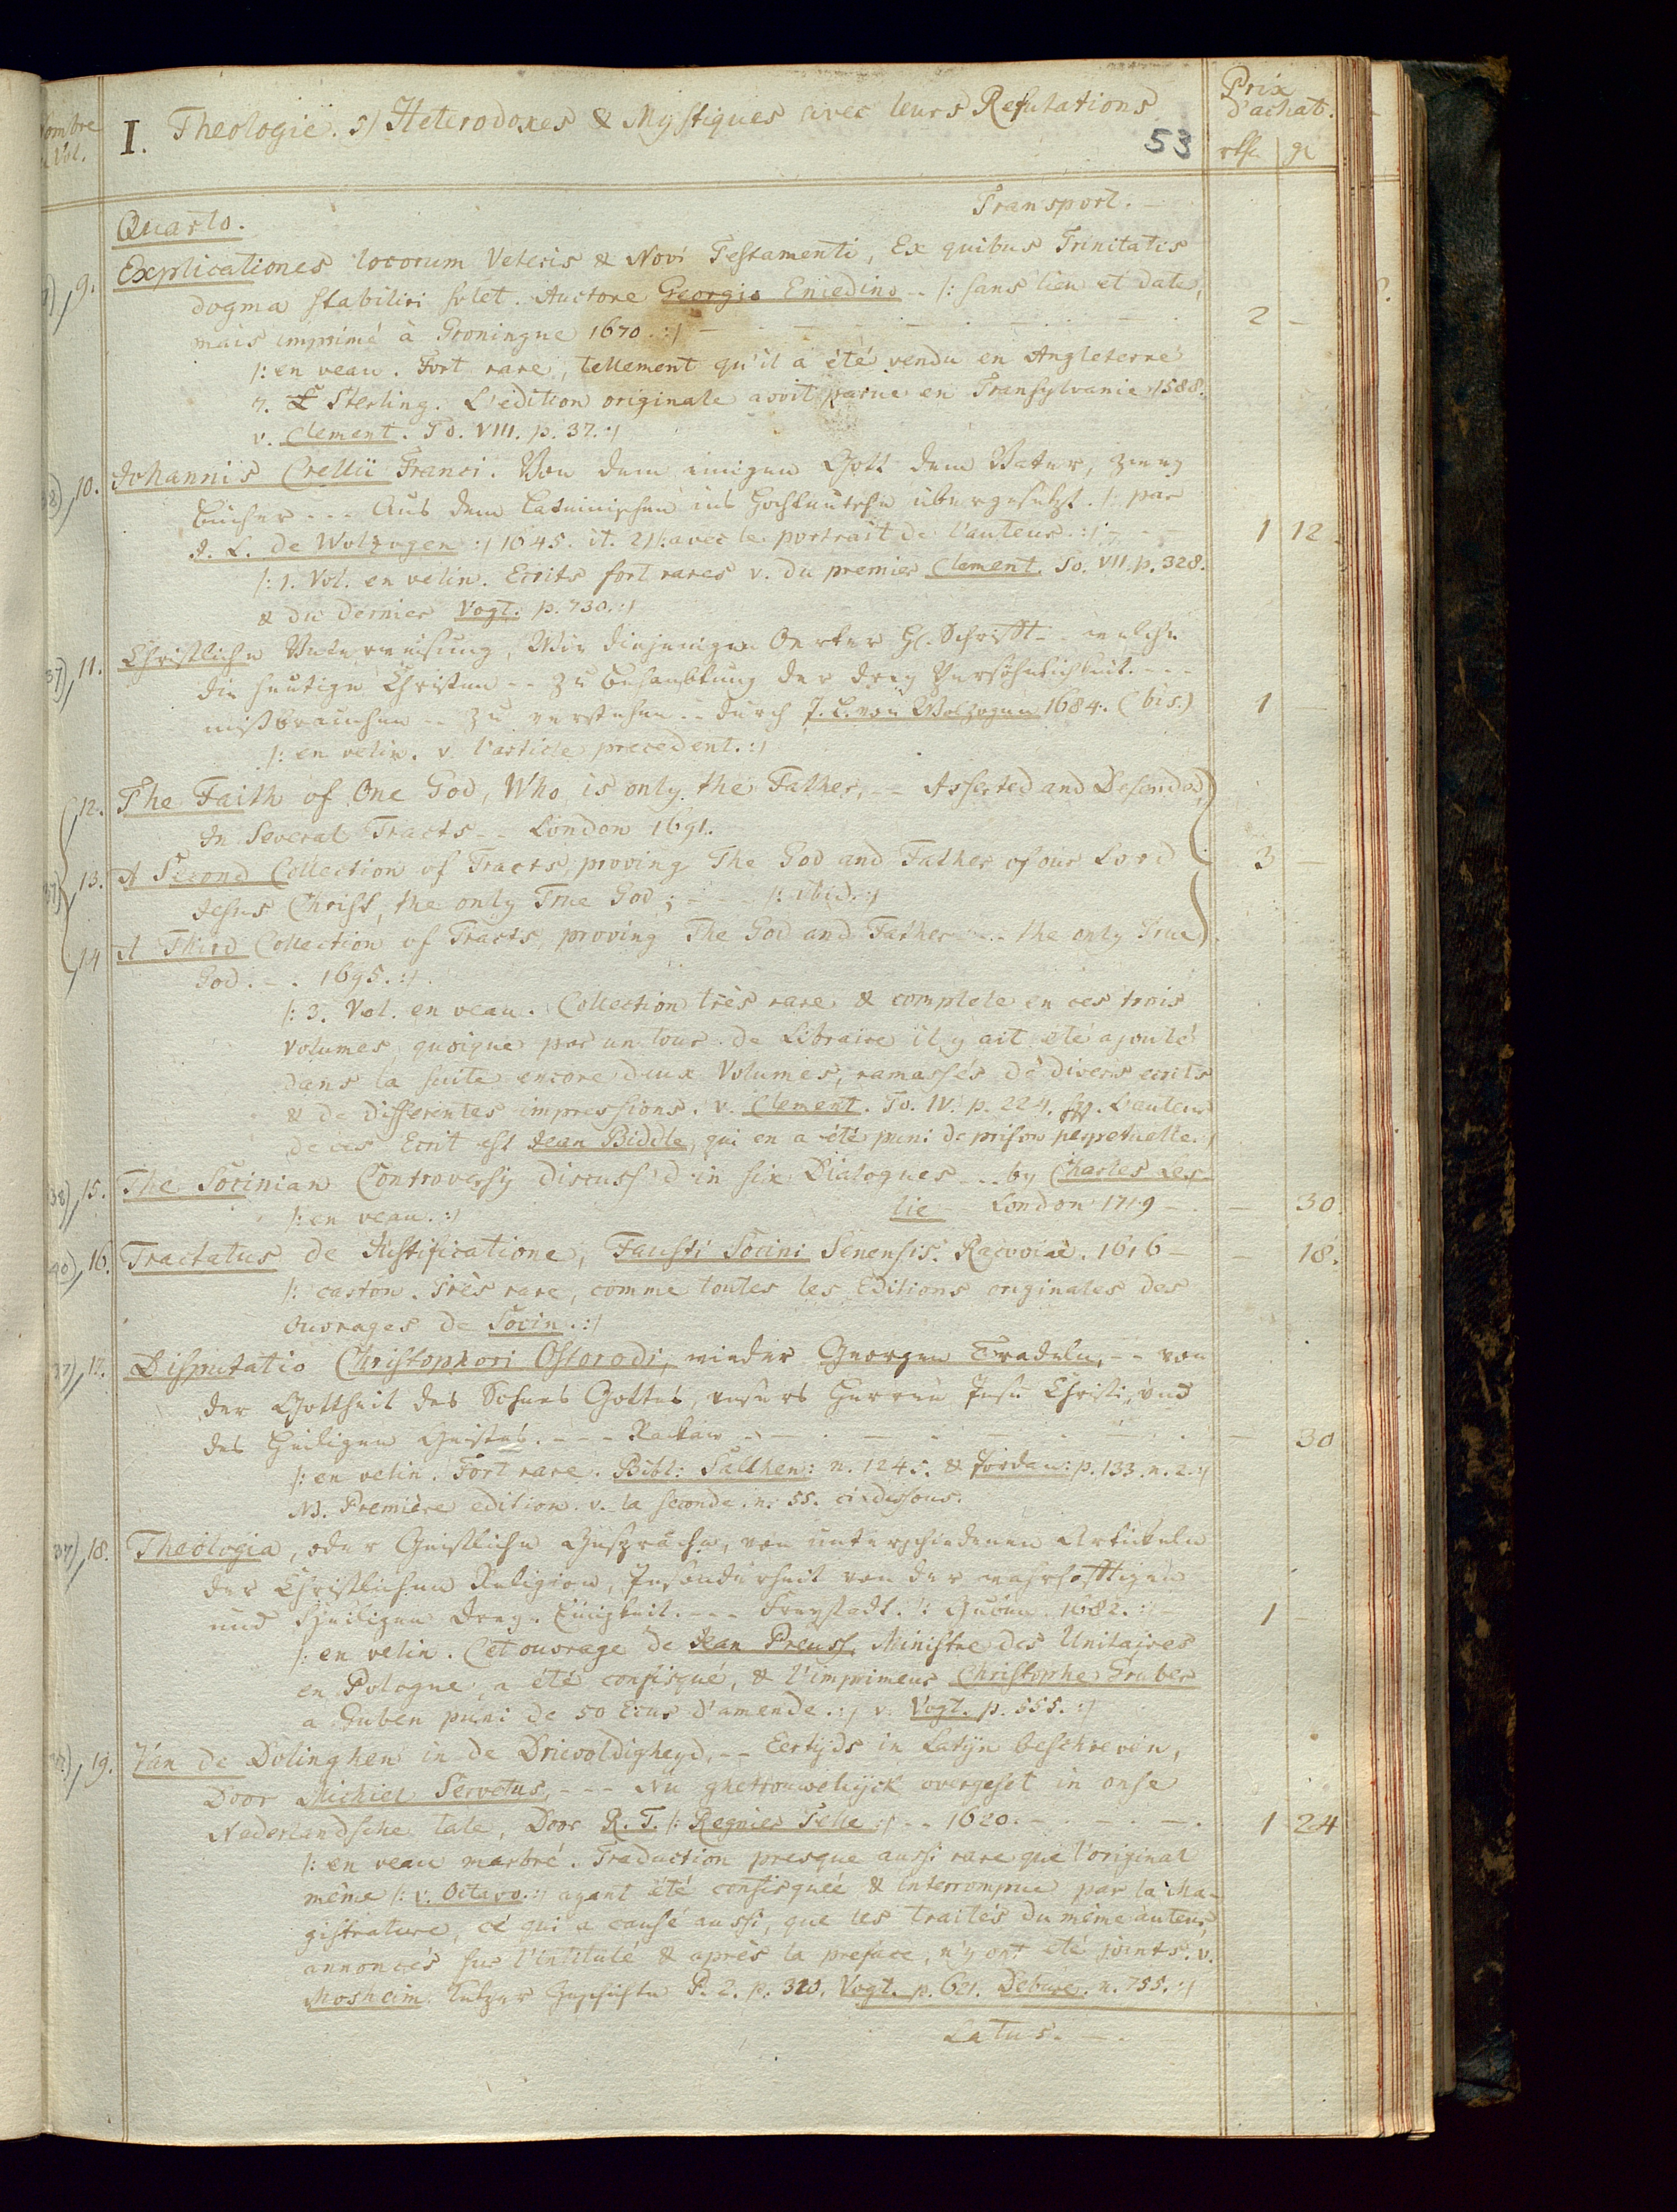 Nombre
Vol.
I. Theologie. 5) Heterodoxes & Mystiques avec leurs Refutations
53
Prix
d'achat.
rth. gl
Transport. —
Quarto.
9. Explicationes locorum Veteris & Novi Testamenti, Ex quibus Trinitatis
dogma stabiliri solet. Auctore Georgio Eniedino -- /: sans lieu et date,
mais imprimé à Groningue 1670. :/ — 2 —
/: en veau. Fort rare, tellement qu'il a été vendu en Angleterre
7. £ Sterling. L'edition originale avoit parue en Transylvanie 1588.
v. Clement. To. VIII. p. 37. :/
10. Johannis Crellii Franci. Von dem einigen Gott dem Vater, zwey
Bücher --- Aus dem Lateinischen ins Hochteutsche übergesetzt. /: par
J. L. de Wolzogen :/ 1645. it. 2) /: avec le portrait de l'auteur. :/ — 1 12.
/: 1. Vol. en velin. Ecrits fort rares v. du premier Clement. To. VII. p. 328.
& du dernier Vogt. p. 730. :/
37) 11. Christliche Unterweisung, Wie diejenigen Oerter H. Schrifft -- welche
die heutigen Christen -- zu Behaubtung der drey Persöhnlichkeit. ---
mißbrauchen -- zu verstehen -- durch J. L. von Wolzogen 1684. (bis.) 1 —
/: en velin. v. l'article precedent. :/
12. The Faith of One God, Who is only the Father, -- Asserted and Defended,
In Several Tracts -- London 1691.
13. A Second Collection of Tracts, proving The God and Father of our Lord 3 —
Jesus Christ, the only True God; -- /: ibid. :/
14 A Third Collection of Tracts, proving The God and Father --- the only True
God. -. 1695. :/
/: 3. Vol. en veau. Collection très rare & complete en ces trois
Volumes, quoique par un tour de Libraire il y ait été ajouté
dans la suite encore deux Volumes, ramassés de divers ecrits
& de differentes impressions. v. Clement. To. IV. p. 224. sq. L'auteur
de ces Ecrit est Jean Biddle, qui en a été puni de prison perpetuelle. :/
38) 15. The Socinian Controversy discuss'd in six Dialogues --- by Charles Les-
/: en veau. :/ lie London 1719 — — 30.
40) 16. Tractatus de Justificatione, Fausti Socini Senensis. Racoviae. 1616 — — 18.
/: carton. Très rare, comme toutes les Editions originales des
Ouvrages de Socin. :/
37) 17. Disputatio Christophori Ostorodi, wieder Georgen Tradeln, -- von
der Gottheit des Sohnes Gottes, unsers Herren Jesu Christi, und
des Heiligen Geistes. --- Rackaw — — 30
/: en velin. Fort rare. Bibl: Salthen: n. 1245. & Jordan: p. 133. n. 2. :/
NB. Première edition. v. la seconde. n. 55. ci-dessous.
18. Theologia, oder Geistliche Gespräche, von unterschiedenen Artickeln
der Christlichen Religion, Insonderheit von der wahrhafftigen
und Heiligen Drey-Einigkeit. --- Freystadt. /: Guben. 1682. :/ 1 —
/: en velin. Cet ouvrage de Jean Preuss, Ministre des Unitaires
en Pologne, a été confisqué, & l'imprimeur Christophe Gruber
a Guben puni de 50 Ecus d'amende. :/ v. Vogt. p. 555. :/
19. Van de Dolinghen in de Drievoldigheyd, -- Eertijds in Latijn beschreven,
Door Michiel Servetus, --- Nu ghetrouwelijck overgeset in onse
Nederlandsche tale, Door R. T. /: Regnier Telle :/ -- 1620. — 1 24
/: en veau marbré. Traduction presque aussi rare que l'original
même /: v. Octavo. :/ ayant été confisquée & interrompue par la Ma-
gistrature, ce qui a causé aussi, que les traités du même auteur,
annoncés sur l'intitulé & après la preface, n'y ont été joints. v.
Mosheim Ketzer Geschichte P. 2. p. 320. Vogt. p. 621. Debure. n. 755. :/
Latus. —